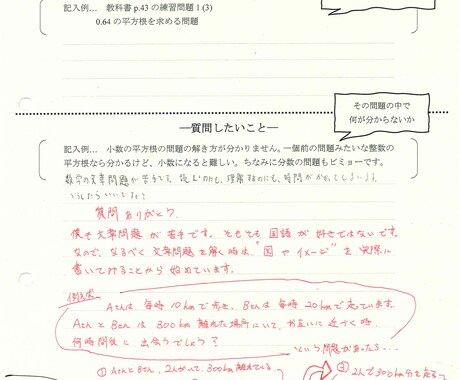 記入例… 教科書 p.43 の練習問題 1 (3)
0.64 の平方根を求める問題
その問題の中で
何が分からないか
―質問したいこと―
記入例… 小数の平方根の問題の解き方が分かりません。一個前の問題みたいな整数の
平方根なら分かるけど、小数になると難しい。ちなみに分数の問題もビミョーです。
数学の文章問題が苦手で、読むのも、理解するのにも、時間がかかってしまいます。
どうしたらいいですか?
質問ありがとう。
僕も文章問題が苦手です。そもそも国語が好きではないです。
なので、なるべく文章問題を解く時は、"図やイメージ"を実際に
書いてみることから始めています。
例えば
Aさんは毎時10kmで歩き、Bさんは毎時20kmで走っています。
AさんとBさんは300km離れた場所にいて、お互いに近づく時、
何時間後に出会うでしょう?
という問題があったら…
① AさんとBさん、2人がいて、300km離れている
② 2人で300km分を走る